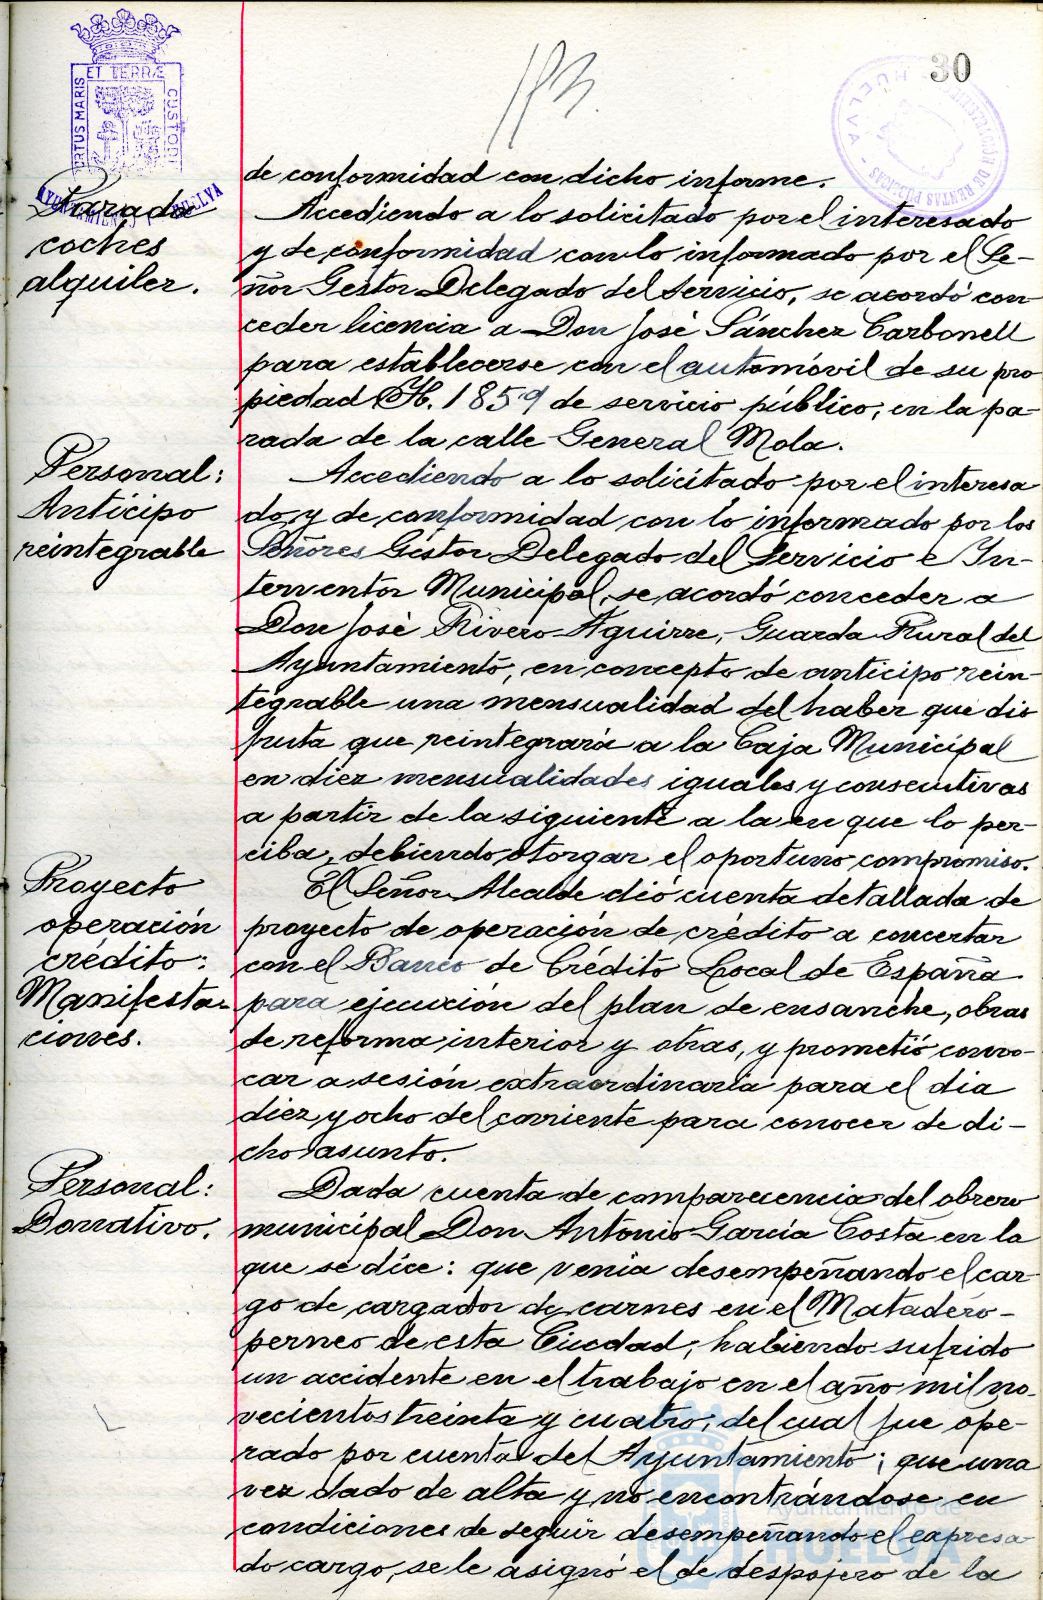 30
193.
PORTUS MARIS
ET TERRÆ
CUSTODI
AYUNTAMIENTO HUELVA
HUELVA
Parada
coches
alquiler.
de conformidad con dicho informe.
Accediendo a lo solicitado por el interesado
y de conformidad con lo informado por el Se-
ñor Gestor Delegado del Servicio, se acordó con-
ceder licencia a Don José Sánchez Carbonell
para establecerse con el automóvil de su pro
piedad H. 1859 de servicio público, en la pa-
rada de la calle General Mola.
Personal:
Anticipo
reintegrable
Accediendo a lo solicitado por el interesa
do y de conformidad con lo informado por los
Señores Gestor Delegado del Servicio e In-
terventor Municipal, se acordó conceder a
Don José Rivero Aguirre, Guarda Rural del
Ayuntamiento, en concepto de anticipo rein-
tegrable una mensualidad del haber que dis
fruta que reintegrará a la Caja Municipal
en diez mensualidades iguales y consecutivas
a partir de la siguiente a la en que lo per-
ciba, debiendo otorgar el oportuno compromiso.
Proyecto
operación
crédito:
Manifesta-
ciones.
El Señor Alcalde dió cuenta detallada de
proyecto de operación de crédito a concertar
con el Banco de Crédito Local de España
para ejecución del plan de ensanche, obras
de reforma interior y otras, y prometió convo-
car a sesión extraordinaria para el dia
diez y ocho del corriente para conocer de di-
cho asunto.
Personal:
Donativo.
Dada cuenta de comparecencia del obrero
municipal Don Antonio García Costa en la
que se dice: que venia desempeñando el car-
go de cargador de carnes en el Matadero-
perneo de esta Ciudad; habiendo sufrido
un accidente en el trabajo en el año mil no-
vecientos treinta y cuatro, del cual fue ope-
rado por cuenta del Ayuntamiento; que una
vez dado de alta y no encontrándose en
condiciones de seguir desempeñando el expresa
do cargo, se le asignó el de despojero de la
Ayuntamiento de
HUELVA